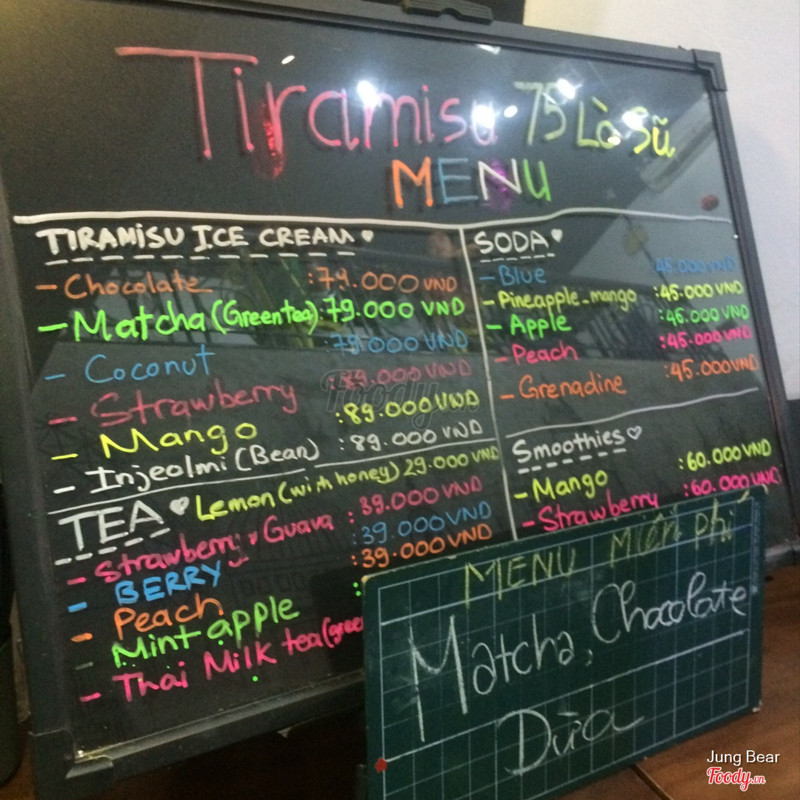 Tiramisu 75 Lò Sũ
MENU
TIRAMISU ICE CREAM
- Chocolate :79.000 VND
- Matcha (Greentea): 79.000 VND
- Coconut 79.000 VND
- Strawberry :89.000 VND
- Mango :89.000 VND
- Injeolmi (Bean) :89.000 VND
TEA
Lemon (with honey) 29.000 VND
- Strawberry, Guava : 39.000 VND
- BERRY 39.000 VND
- Peach :39.000 VND
- Mint apple :
- Thai Milk tea (gree
SODA
- Blue 45.000 VND
- Pineapple_mango :45.000 VND
- Apple :45.000 VND
- Peach :45.000 VND
- Grenadine :45.000 VND
Smoothies
- Mango :60.000 VND
- Strawberry :60.000 VND
MENU Miễn phí
Matcha, Chocolate
Dừa
Foody.vn
Jung Bear
Foody.vn